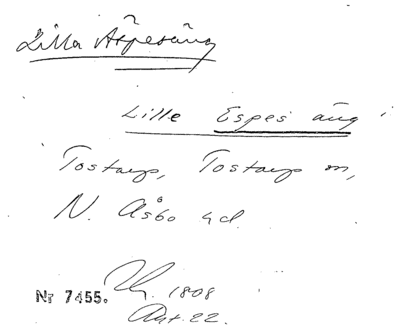 Lilla Äspesäng
Lille Espes äng i
Tostarp, Tostarp m,
N. Åsbo hd.
Nr 7455. 1808
Akt. 22.